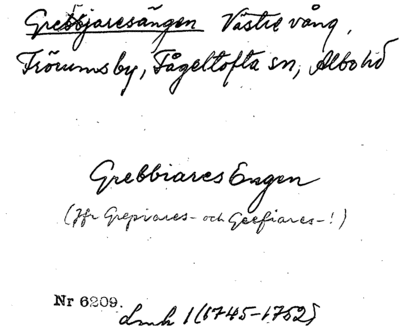 Grebbjaresängen Västre vång,
Frörumsby, Fågeltofta sn, Albo hd
Grebbiares Engen
(Jfr Grepiares- och Geefiares-!)
Nr 6209.
Lmh 1 (1745-1752)